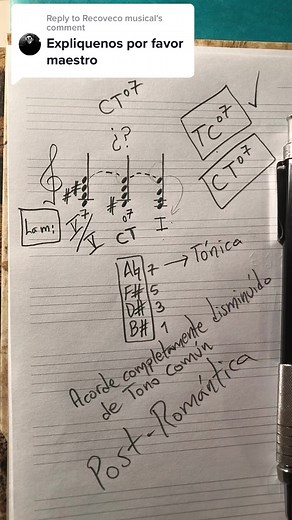 Reply to Recoveco musical's
comment
Expliquenos por favor
maestro
CT°7
¿?
TC°7
CT°7
# #
#
La m:
V7/V
CT°7
I
A♮ 7 → Tónica
F# 5
D# 3
B# 1
Acorde completamente disminuído
de Tono común
Post-Romántica